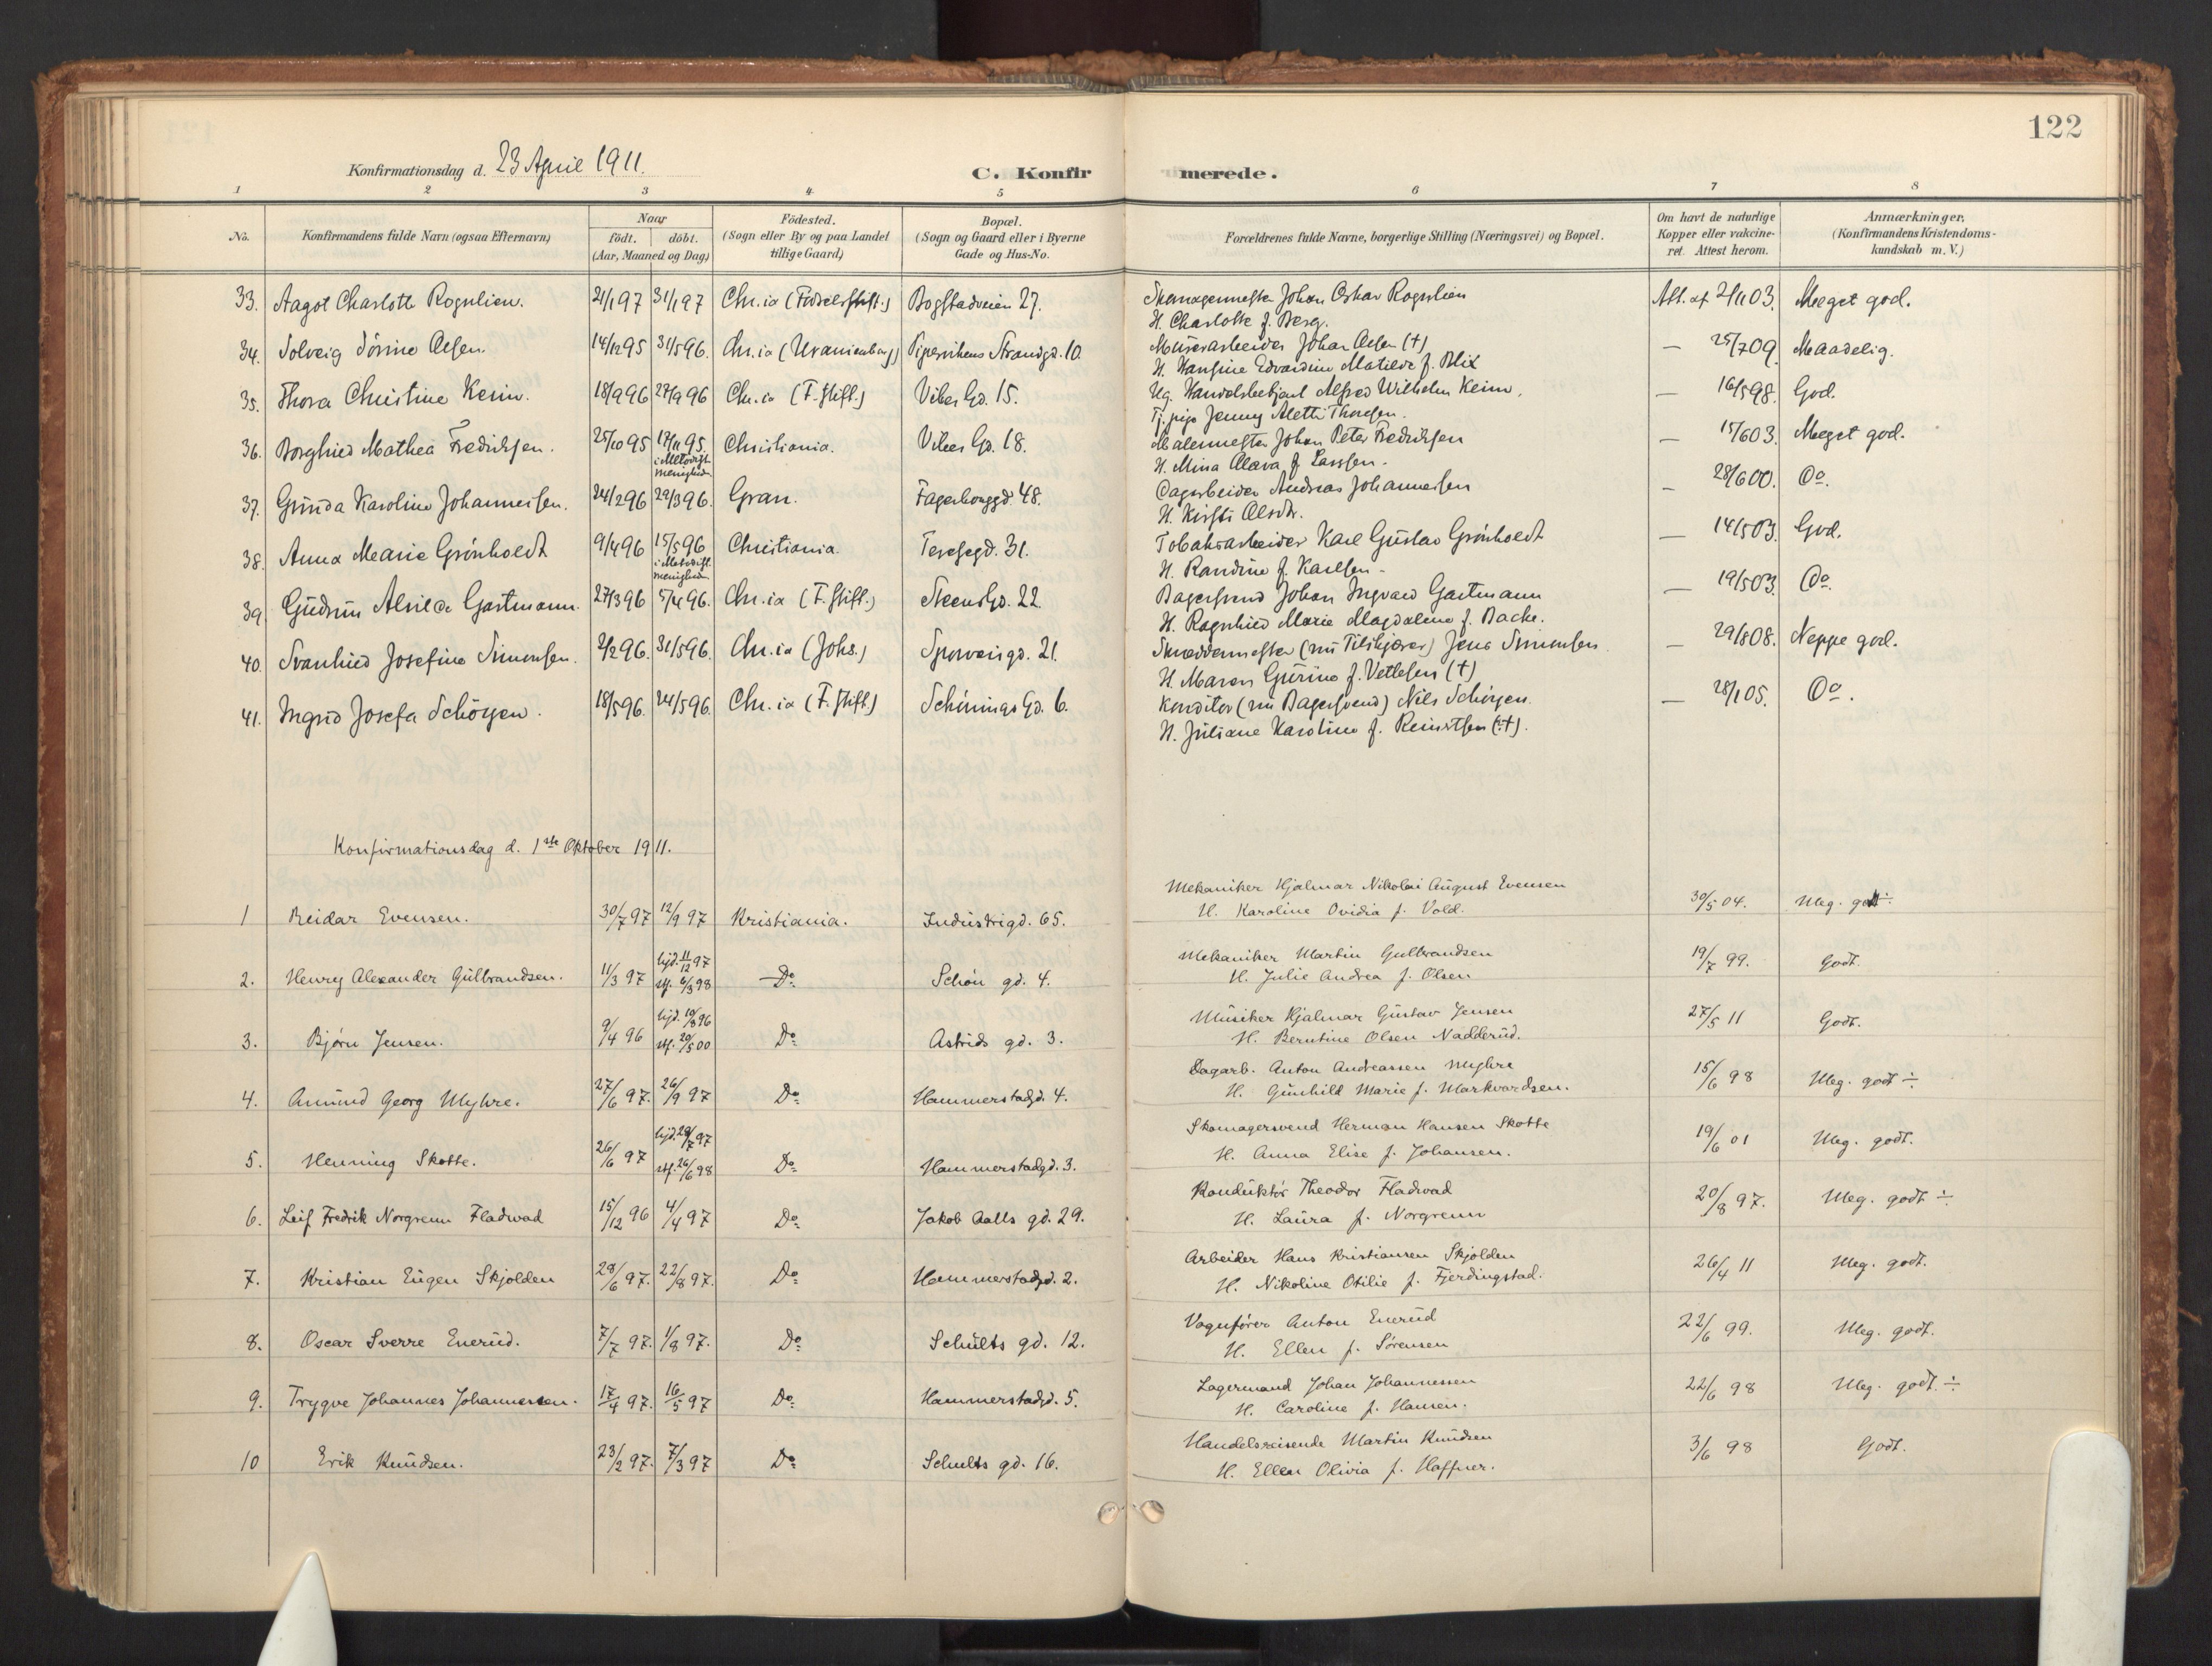 122
Konfirmationsdag d. 23 April 1911.
C. Konfirmerede.
1 2 3 4 5 6 7 8
No. Konfirmandens fulde Navn (ogsaa Efternavn) Naar født. døbt. (Aar, Maaned og Dag) Fødested. (Sogn eller By og paa Landet tillige Gaard) Bopæl. (Sogn og Gaard eller i Byerne Gade og Hus-No. Forældrenes fulde Navne, borgerlige Stilling (Næringsvei) og Bopæl. Om havt de naturlige Kopper eller vakcineret. Attest herom. Anmærkninger. (Konfirmandens Kristendomskundskab m. V.)
33. Aagot Charlotte Rognlien. 21/1 97 31/1 97 Chr.ia (Fødselsstift.) Bogstadveien 27. Skomagermester Johan Oskar Rognlien Att. af 2/11 03. Meget god.
H. Charlotte f. Berg.
34. Solveig Jørine Olsen. 14/12 95 31/5 96. Chr.ia (Uranienborg) Pipervikens Strandgd. 10. Murerarbeider Johan Olsen (†) — 25/7 09. Maadelig.
H. Hansine Edvardine Matilde f. Blix
35. Thora Christine Keim. 18/9 96 27/9 96 Chr.ia (F. stift.) Vibes Gd. 15. Ug. Handelsbetjent Alfred Wilhelm Keim. — 16/5 98. God.
Tj. pige Jenny Alette Thoresen.
36. Borghild Mathea Fredriksen. 25/10 95 17/11 95. i Metodist menigheden Christiania. Vibes Gd. 18. Malermester Johan Peter Fredriksen — 15/6 03. Meget god.
H. Mina Olava f. Larssen.
37. Gunda Karoline Johannessen. 24/2 96 29/3 96. Gran. Fagerborggd. 48. Dagarbeider Andreas Johannessen — 28/6 00. Do.
H. Kirsti Olsdtr.
38. Anna Marie Grønholdt 9/4 96 15/5 96 i Metodist menigheden Christiania. Teresegd. 31. Tobaksarbeider Karl Gustav Grønholdt — 14/5 03. God.
H. Randine f. Karlsen.
39. Gudrun Alvilde Gartmann. 27/3 96 5/4 96. Chr.ia (F. stift.) Steens Gd. 22. Bagersvend Johan Ingvard Gartmann — 19/5 03. Do.
H. Ragnhild Marie Magdalene f. Bache.
40. Svanhild Josefine Simonsen. 2/2 96. 31/5 96. Chr.ia (Johs.) Sporveisgd. 21. Smeddermester (nu Tilskjærer) Jens Simonsen — 29/8 08. Neppe god.
H. Maren Gurine f. Vetlesen (†)
41. Ingrid Josefa Schöyen. 18/5 96. 24/5 96. Chr.ia (F. stift.) Schönings Gd. 6. Konditor (nu Bagersvend) Nils Schöyen. — 28/1 05. Do.
H. Juliane Karoline f. Reinertsen (†).
Konfirmationsdag d. 1ste Oktober 1911.
1 Reidar Evensen. 30/7 97 12/9 97 Kristiania. Industrigd. 65. Mekaniker Hjalmar Nikolai August Evensen 30/5 04. Meg. godt ÷
H. Karoline Ovidia f. Vold.
2. Henry Alexander Gulbrandsen. 11/3 97 hjd. 11/12 97 stf. 6/3 98 Do. Schøn gd. 4. Mekaniker Martin Gulbrandsen 19/7 99. Godt.
H. Julie Andrea f. Olsen
3. Bjørn Jensen. 9/4 96 hjd. 10/8 96 stf. 20/5 00 Do. Astrids gd. 3. Musiker Hjalmar Gustav Jensen 27/5 11 Godt.
H. Berntine Olsen Nadderud.
4. Amund Georg Myhre. 27/6 97. 26/9 97 Do. Hammerstadgd. 4. Dagarb. Anton Andreassen Myhre 15/6 98 Meg. godt ÷
H. Gunhild Marie f. Markvardsen.
5. Henning Skotte. 26/6 97 hjd. 29/7 97 stf. 26/6 98 Do. Hammerstadgd. 3. Skomagersvend Herman Hansen Skotte 19/6 01 Meg. godt.
H. Anna Elise f. Johansen.
6. Leif Fredrik Norgrenn Fladvad 15/12 96 4/4 97 Do. Jakob Aalls gd. 29. Konduktør Theodor Fladvad 20/8 97. Meg. godt ÷
H. Laura f. Norgrenn
7. Kristian Eugen Skjolden 28/6 97. 22/8 97. Do. Hammerstadgd. 2. Arbeider Hans Kristiansen Skjolden 26/4 11 Meg. godt.
H. Nikoline Otilie f. Fjerdingstad.
8. Oscar Sverre Enerud. 7/7 97. 1/8 97. Do. Schults gd. 12. Vognfører Anton Enerud 22/6 99. Meg. godt.
H. Ellen f. Sørensen
9. Trygve Johannes Johannessen. 17/4 97. 16/5 97 Do. Hammerstadgd. 5. Lagermand Johan Johannessen 22/6 98 Meg. godt. ÷
H. Caroline f. Hansen.
10 Erik Knudsen. 23/2 97. 7/3 97 Do. Schults gd. 16. Handelsreisende Martin Knudsen 3/6 98 Godt.
H. Ellen Olivia f. Haffner.